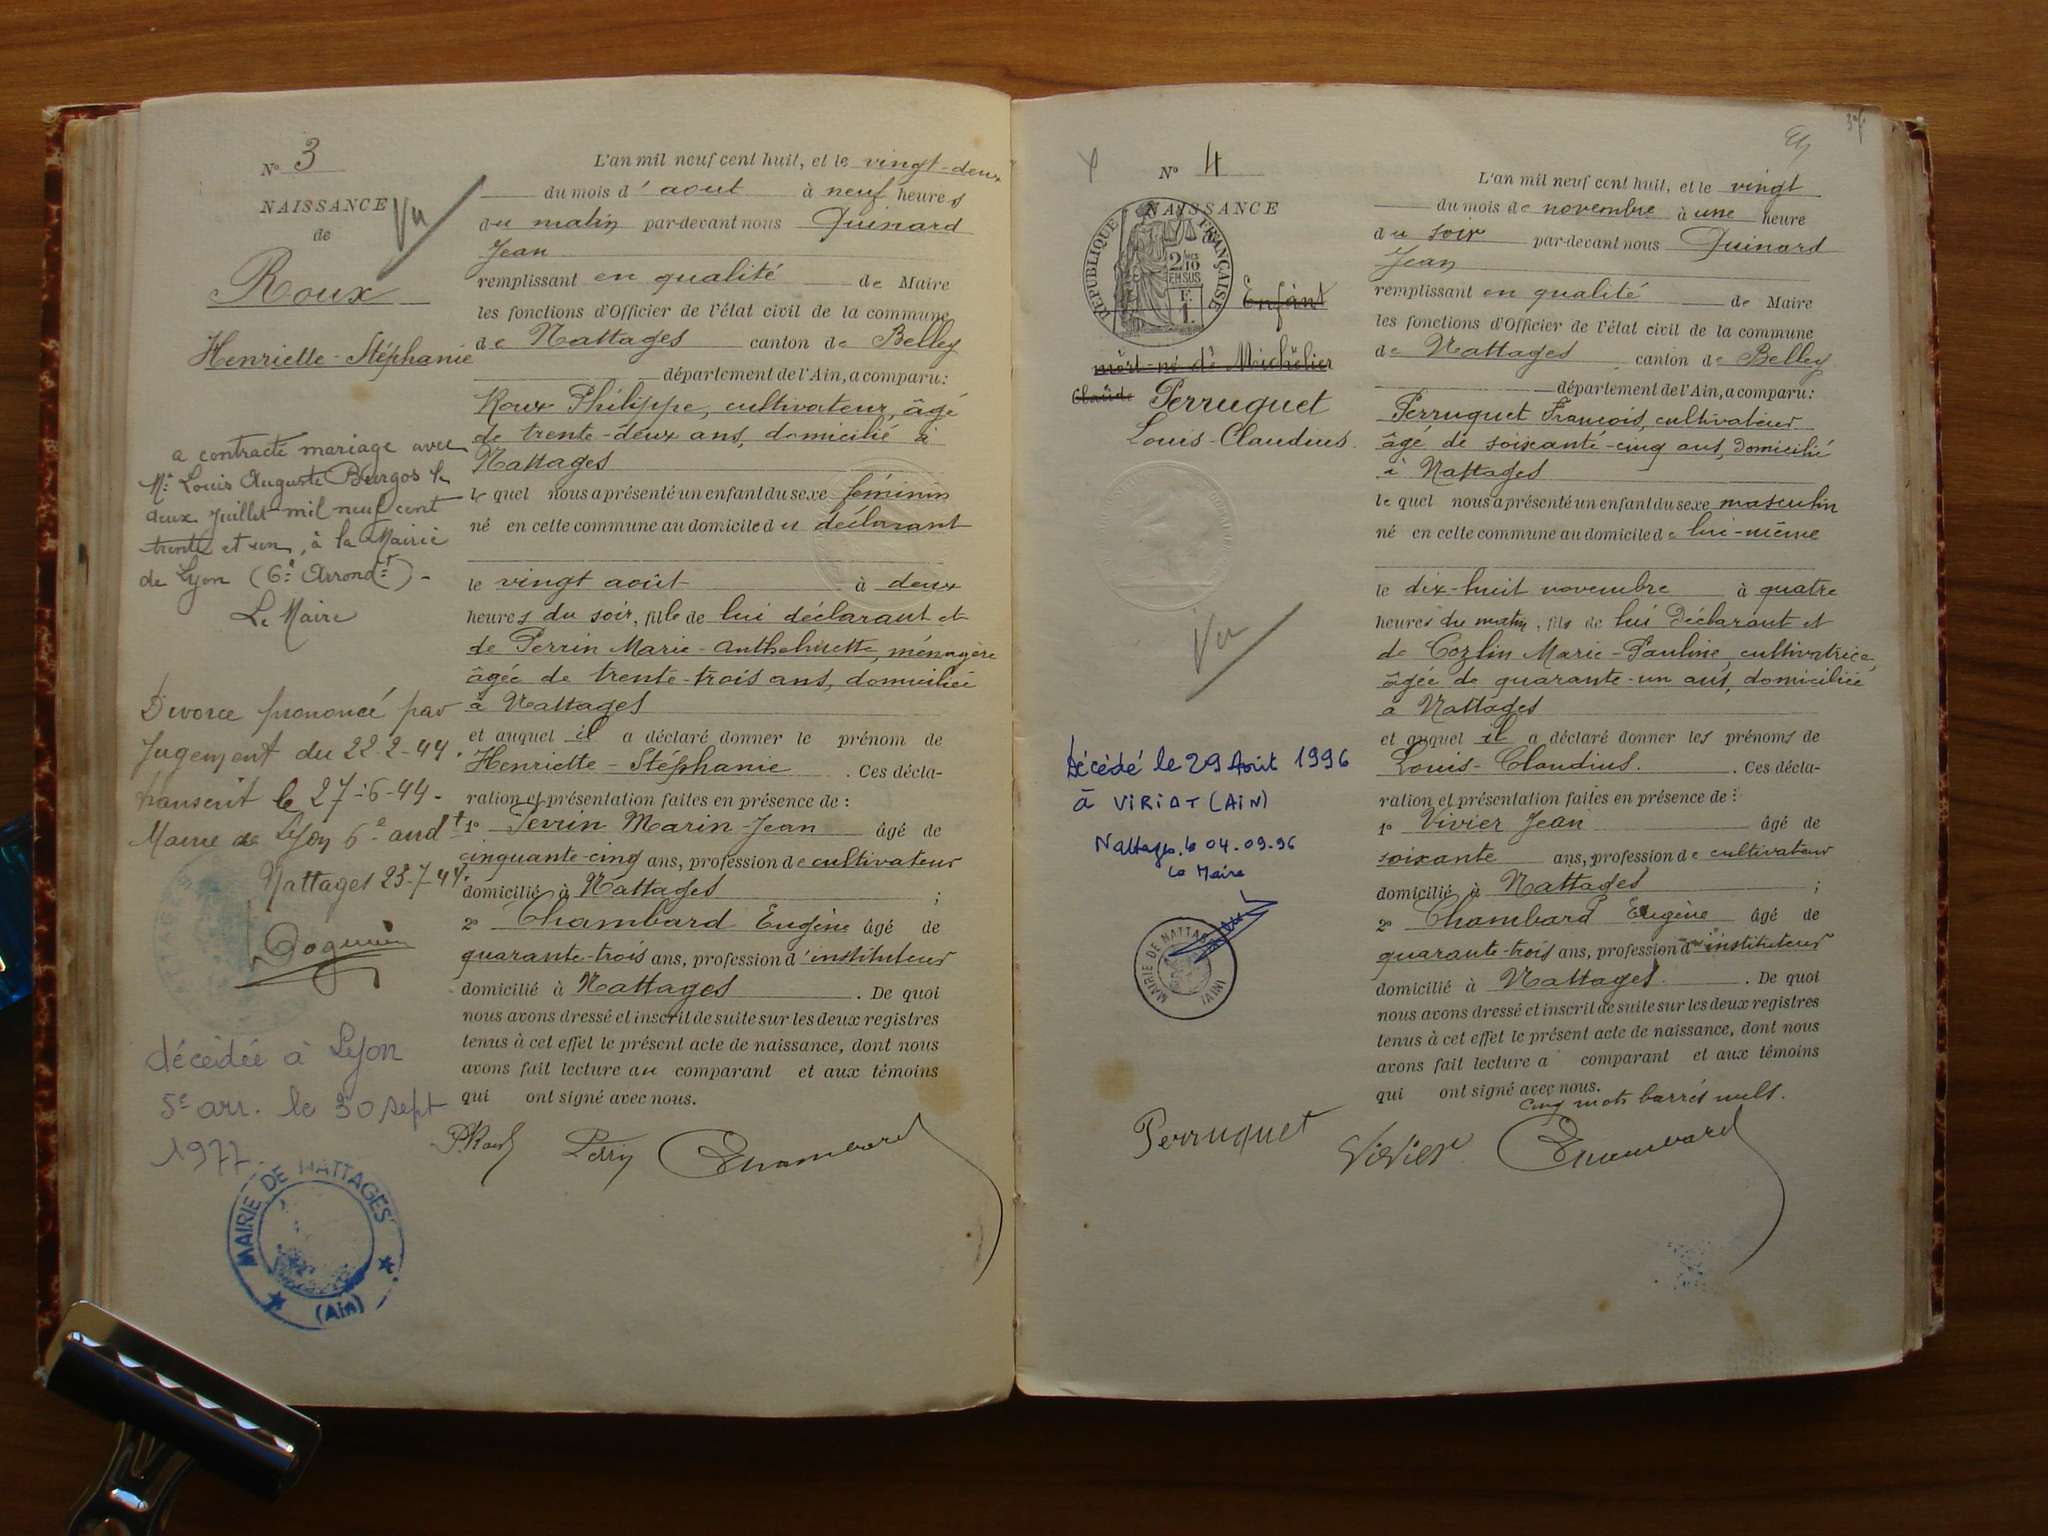 N° 3
NAISSANCE
de
Roux
Henriette-Stéphanie
Vu
a contracté mariage avec
Mr Louis Auguste Burgos le
deux Juillet mil neuf cent
trente et un, à la Mairie
de Lyon (6e Arrondt) -
Le Maire
Divorce prononcé par
Jugement du 22-2-44.
transcrit le 27-6-44-
Mairie de Lyon 6e arrdt
Nattages 23-7-44.
décédée à Lyon
5e arr. le 30 sept
1977.
MAIRIE DE NATTAGES
(Ain)
L'an mil neuf cent huit, et le vingt-deux
du mois d'aout à neuf heures
du matin par-devant nous Quinard
Jean
remplissant en qualité de Maire
les fonctions d'Officier de l'état civil de la commune
de Nattages canton de Belley
département de l'Ain, a comparu:
Roux Philippe, cultivateur, âgé
de trente-deux ans, domicilié à
Nattages
le quel nous a présenté un enfant du sexe féminin
né en cette commune au domicile du déclarant
le vingt août à deux
heures du soir, fille de lui déclarant et
de Perrin Marie-Anthelmette, ménagère
âgée de trente-trois ans, domiciliée
à Nattages
et auquel il a déclaré donner le prénom de
Henriette-Stéphanie. Ces décla-
ration et présentation faites en présence de:
1° Perrin Marin-Jean âgé de
cinquante-cinq ans, profession de cultivateur
domicilié à Nattages ;
2° Chambard Eugène âgé de
quarante-trois ans, profession d'instituteur
domicilié à Nattages. De quoi
nous avons dressé et inscrit de suite sur les deux registres
tenus à cet effet le présent acte de naissance, dont nous
avons fait lecture au comparant et aux témoins
qui ont signé avec nous.
P. Roux Perrin Chambard
N° 4
NAISSANCE
REPUBLIQUE FRANÇAISE
2/10
EN SUS
Enfant
mort-né de Michelier
Claude Perruquet
Louis-Claudius.
Vu
Décédé le 29 Août 1996
à VIRIAT (AIN)
Nattages, le 04.09.96
Le Maire
MAIRIE DE NATTAGES (AIN)
L'an mil neuf cent huit, et le vingt
du mois de novembre à une heure
du soir par-devant nous Quinard
Jean
remplissant en qualité de Maire
les fonctions d'Officier de l'état civil de la commune
de Nattages canton de Belley
département de l'Ain, a comparu:
Perruquet François, cultivateur
âgé de soixante-cinq ans, domicilié
à Nattages
le quel nous a présenté un enfant du sexe masculin
né en cette commune au domicile de lui-même
le dix-huit novembre à quatre
heures du matin, fils de lui Déclarant et
de Cozlin Marie-Pauline, cultivatrice
âgée de quarante-un ans, domiciliée
à Nattages
et auquel il a déclaré donner les prénoms de
Louis-Claudius. Ces décla-
ration et présentation faites en présence de:
1° Vivier Jean âgé de
soixante ans, profession de cultivateur
domicilié à Nattages ;
2° Chambard Eugène âgé de
quarante-trois ans, profession d'instituteur
domicilié à Nattages. De quoi
nous avons dressé et inscrit de suite sur les deux registres
tenus à cet effet le présent acte de naissance, dont nous
avons fait lecture a comparant et aux témoins
qui ont signé avec nous.
Cinq mots barrés nuls.
Perruquet Vivier Chambard